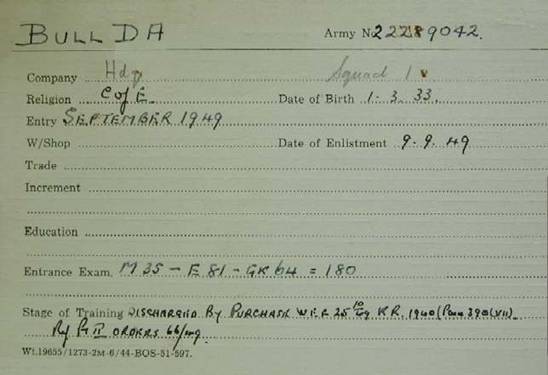 BULL DA Army No 22289042.
Company Hdq Squad 1
Religion C of E. Date of Birth 1. 3. 33.
Entry SEPTEMBER 1949
W/Shop Date of Enlistment 9. 9. 49
Trade
Increment
Education
Entrance Exam. M 35 - E 81 - GK 64 = 180
Stage of Training DISCHARGED By PURCHASE W.E.F. 25 K.R. 1940 (Para 390 (VII).
Ref Pt II ORDERS 66/49.
Wt.19655/1273-2M-6/44-BOS-51-597.